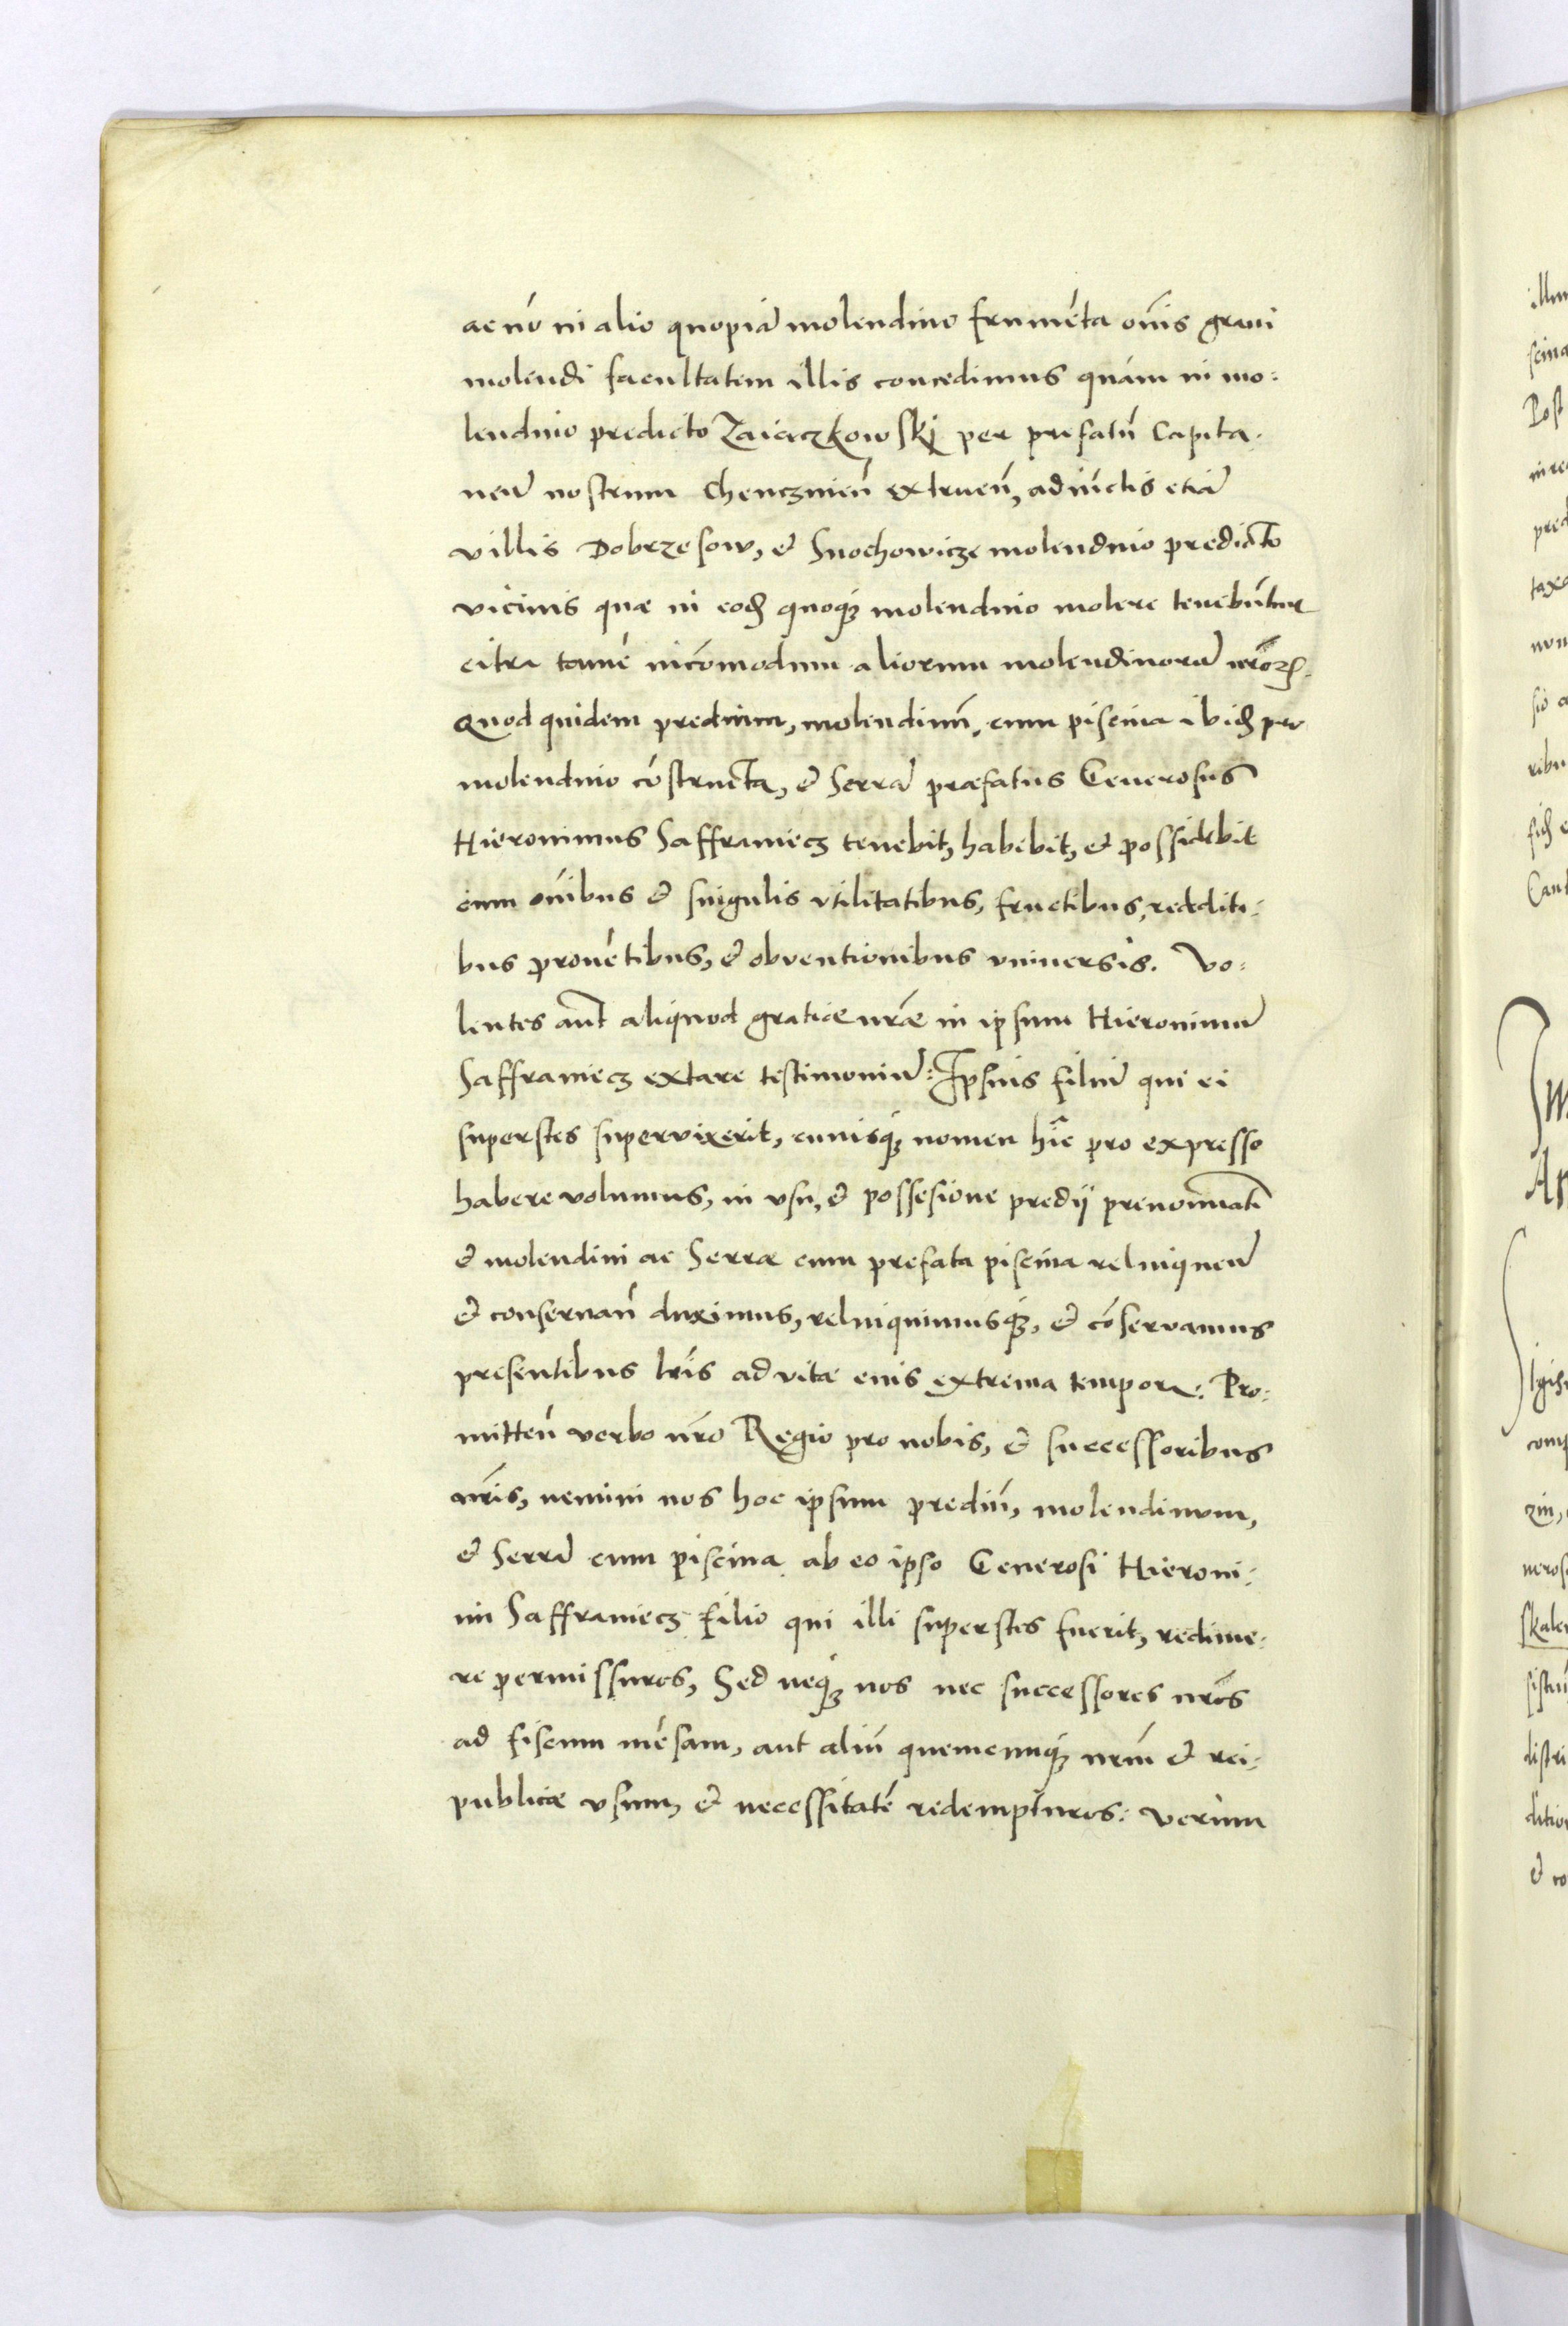 ac nõ in alio quopiã molendino frumẽta oĩs grani
molendi facultatem illis concedimus quàm in mo:
lendino predicto Zaiaczkowskj per prefatũ Capita.
neũ nostrum Chencznieñ extrueñ, adiũctis etiã
villis Dobrzesow, & Snochowicze molendino predicto
vicinis quæ in eodẽ quoqȝ molendino molere tenebũtur
citra tamẽ incõmodum aliorum molendinorũ nrõrꝫ.
Quod quidem predium, molendinũ, cum piscina ibidẽ pro
molendino cõstructa, & Serrã præfatus Generosus
Hieronimus Saffraniecz tenebit, habebit, & possidebit
cum oĩbus & singulis vtilitatibus, fructibus, redditi:
bus prouẽtibus, & obventionibus vniuersis. Vo:
lentes aũt aliquod gratiæ nr̃æ in ipsum Hieronimũ
Saffraniecz extare testimoniũ: Ipsius filiũ qui ei
superstes supervixerit, cuiusqȝ nomen hĩc pro expresso
habere volumus, in vsu, & possesione predij prenominati
& molendini ac Serræ cum prefata piscina relinqueñ
& conseruañ duximus, relinquimusqȝ, & cõservamus
presentibus lr̃is ad vitæ eius extrema tempora: Pro:
mitteñ verbo nr̃o Regio pro nobis, & successoribus
nr̃is, nemini nos hoc ipsum prediũ, molendinum,
& Serrã cum piscina ab eo ipso Generosi Hieroni:
mi Saffraniecz filio qui illi superstes fuerit, redime:
re permissuros, Sed neqȝ nos nec successores nr̃os
ad fiscum mẽsam, aut aliũ quemcunqȝ nr̃m & rei:
publicæ vsum, & necessitatẽ redempturos: Verùm